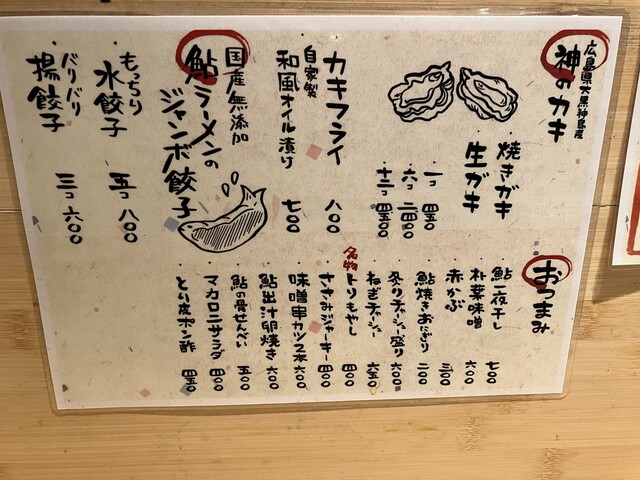 広島県大黒神島産
神のカキ
・焼きガキ
生ガキ
一コ 四五〇
六コ 二四〇〇
十二コ 四五〇〇
・カキフライ 八〇〇
・自家製
和風オイル漬け 七〇〇
国産無添加
鮎ラーメンの
ジャンボ餃子
・もっちり
水餃子 五コ 八〇〇
・パリパリ
揚餃子 三コ 六〇〇
おつまみ
鮎一夜干し 七〇〇
朴葉味噌 六〇〇
赤かぶ 三〇〇
鮎焼きおにぎり 二〇〇
炙りチャーシュー盛り 六〇〇
ねぎチャーシュー 六五〇
名物 トリもやし 四〇〇
ささみジャーキー 四〇〇
味噌串カツ2本 六〇〇
鮎出汁卵焼き 六〇〇
鮎の骨せんべい 五〇〇
マカロニサラダ 四〇〇
とり皮ポン酢 四五〇